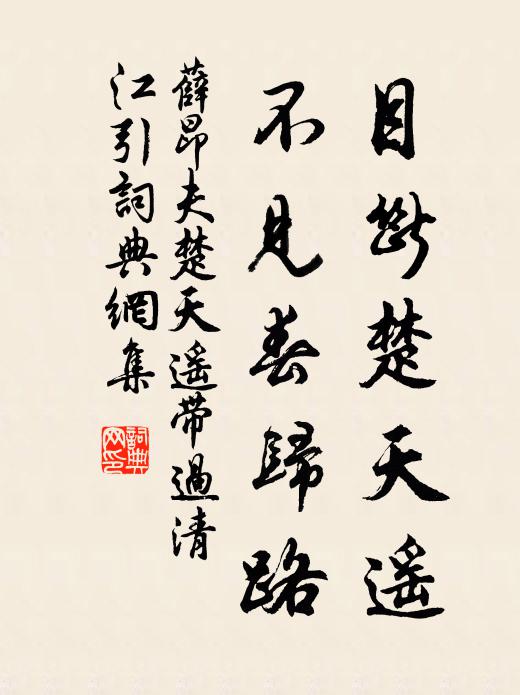 目断楚天遥
不見春歸路
薛昂夫楚天遥带過清
江引詞典網集
詞典
网印